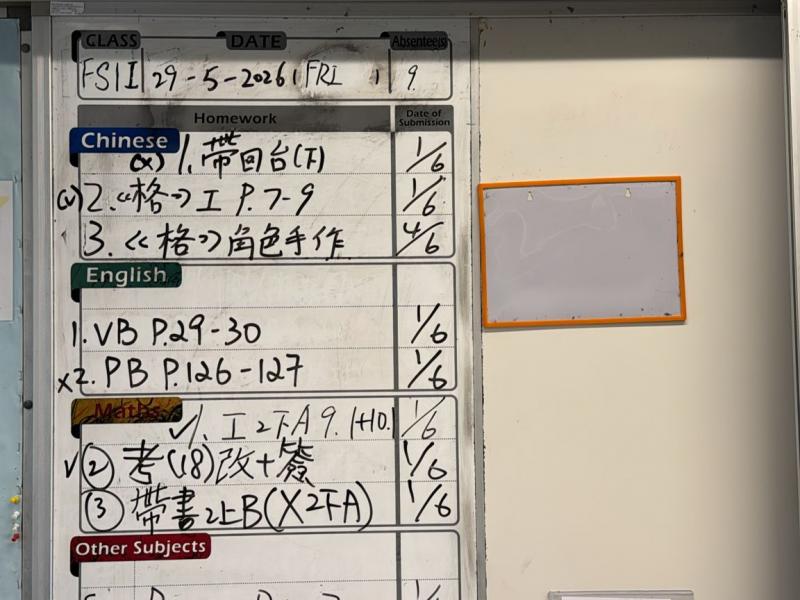 CLASS DATE Absentee(s)
FSII 29-5-2026 FRI 9
Homework Date of Submission
Chinese
(x) 1. 帶回台(下) 1/6
(v) 2. 《格》工 P.7-9 1/6
3. 《格》角色手作 4/6
English
1. VB P.29-30 1/6
x2. PB P.126-127 1/6
Maths
✓1. 工2下A 9.1+10.1 1/6
✓② 考(18)改+簽 1/6
③ 帶書2上B(X2下A) 1/6
Other Subjects